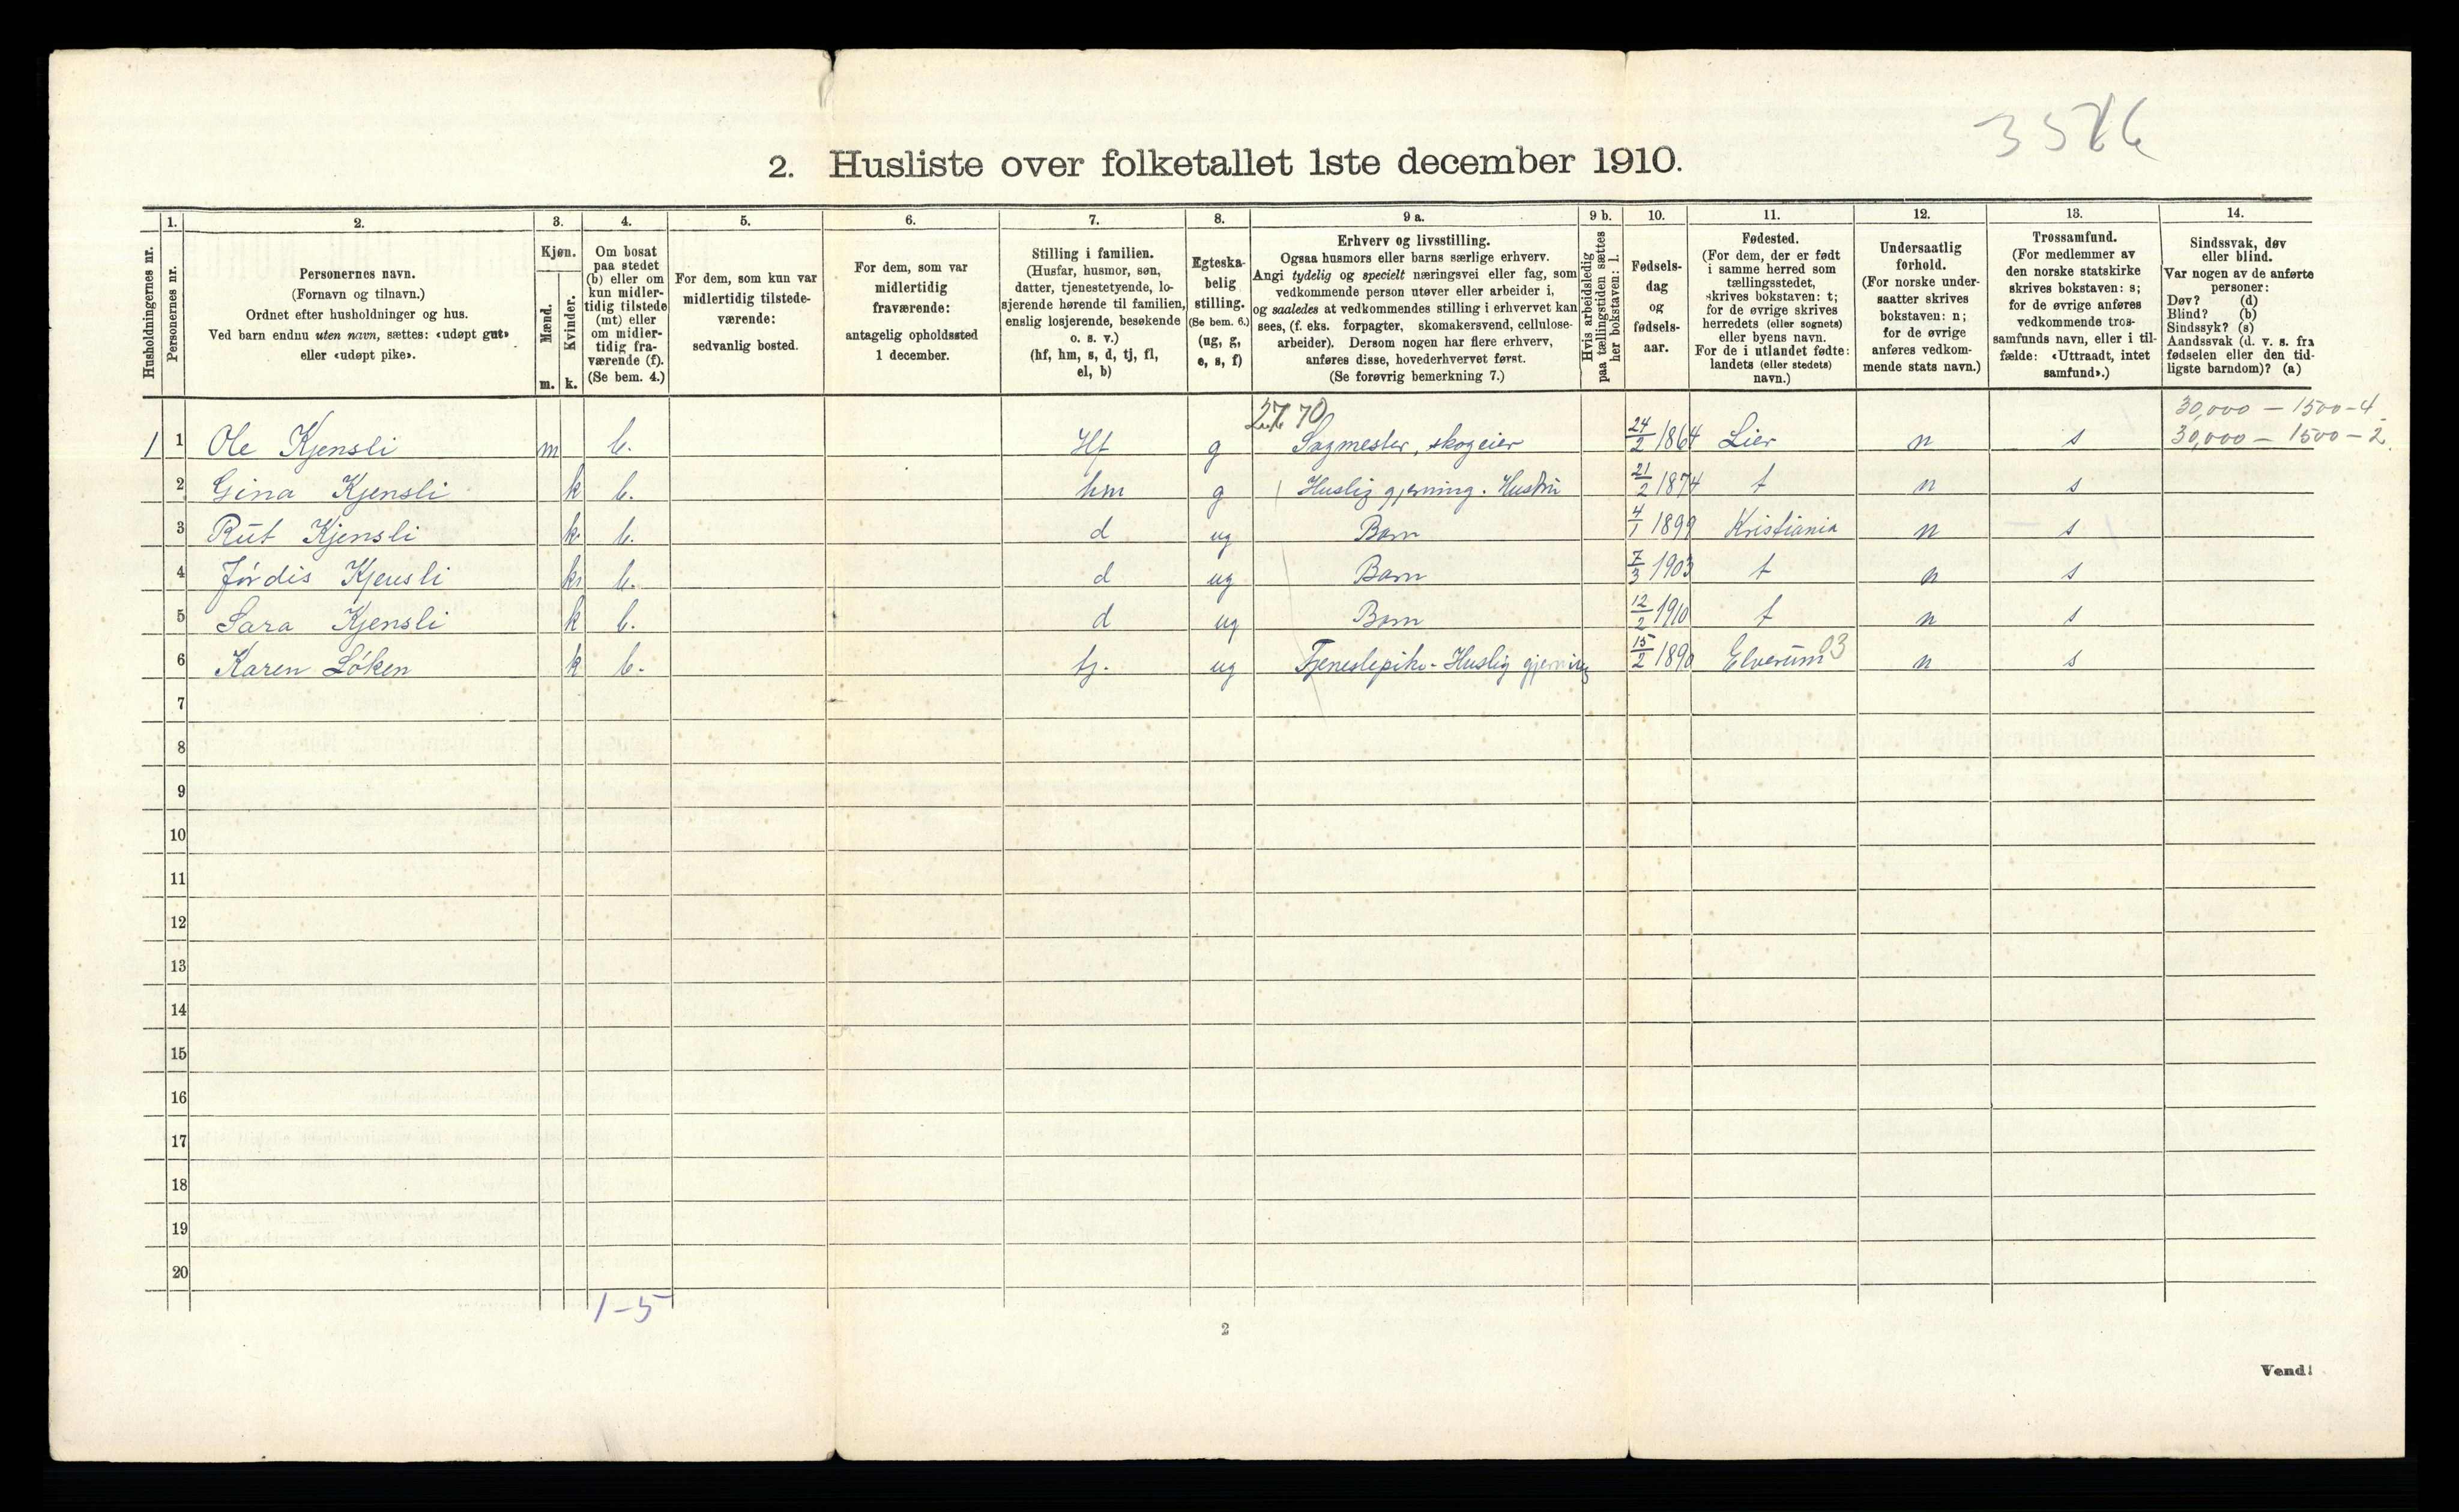 3576
2. Husliste over folketallet 1ste december 1910.
Husholdningernes nr.
1. Personernes nr.
2.
Personernes navn.
(Fornavn og tilnavn.)
Ordnet efter husholdninger og hus.
Ved barn endnu uten navn, sættes: «udøpt gut»
eller «udøpt pike».
3.
Kjøn.
Mænd.
Kvinder.
m. k.
4.
Om bosat
paa stedet
(b) eller om
kun midler-
tidig tilstede
(mt) eller
om midler-
tidig fra-
værende (f).
(Se bem. 4.)
5.
For dem, som kun var
midlertidig tilstede-
værende:
sedvanlig bosted.
6.
For dem, som var
midlertidig
fraværende:
antagelig opholdssted
1 december.
7.
Stilling i familien.
(Husfar, husmor, søn,
datter, tjenestetyende, lo-
sjerende hørende til familien,
enslig losjerende, besøkende
o. s. v.)
(hf, hm, s, d, tj, fl,
el, b)
8.
Egteska-
belig
stilling.
(Se bem. 6.)
(ug, g,
e, s, f)
9 a.
Erhverv og livsstilling.
Ogsaa husmors eller barns særlige erhverv.
Angi tydelig og specielt næringsvei eller fag, som
vedkommende person utøver eller arbeider i,
og saaledes at vedkommendes stilling i erhvervet kan
sees, (f. eks. forpagter, skomakersvend, cellulose-
arbeider). Dersom nogen har flere erhverv,
anføres disse, hovederhvervet først.
(Se forøvrig bemerkning 7.)
9 b.
Hvis arbeidsledig
paa tællingstiden sættes
her bokstaven: l.
10.
Fødsels-
dag
og
fødsels-
aar.
11.
Fødested.
(For dem, der er født
i samme herred som
tællingsstedet,
skrives bokstaven: t;
for de øvrige skrives
herredets (eller sognets)
eller byens navn.
For de i utlandet fødte:
landets (eller stedets)
navn.)
12.
Undersaatlig
forhold.
(For norske under-
saatter skrives
bokstaven: n;
for de øvrige
anføres vedkom-
mende stats navn.)
13.
Trossamfund.
(For medlemmer av
den norske statskirke
skrives bokstaven: s;
for de øvrige anføres
vedkommende tros-
samfunds navn, eller i til-
fælde: «Uttraadt, intet
samfund».)
14.
Sindssvak, døv
eller blind.
Var nogen av de anførte
personer:
Døv? (d)
Blind? (b)
Sindssyk? (s)
Aandssvak (d. v. s. fra
fødselen eller den tid-
ligste barndom)? (a)
70
30,000 - 1500-4
1 1 Ole Kjensli m b. Hf g Sagmester, skogeier 24/2 1864 Lier n s 30,000 - 1500-2
2 Gina Kjensli k b. hm g Huslig gjerning. Hustru 21/2 1874 t n s
3 Rut Kjensli k b. d ug Barn 4/1 1899 Kristiania n s
4 Jördis Kjensli k b. d ug Barn 7/3 1903 t n s
5 Sara Kjensli k b. d ug Barn 12/2 1910 t n s
6 Karen Löken k b. tj. ug Tjenestepike - Huslig gjerning 15/2 1890 Elverum 03 n s
7
8
9
10
11
12
13
14
15
16
17
18
19
20
1-5
2
Vend!